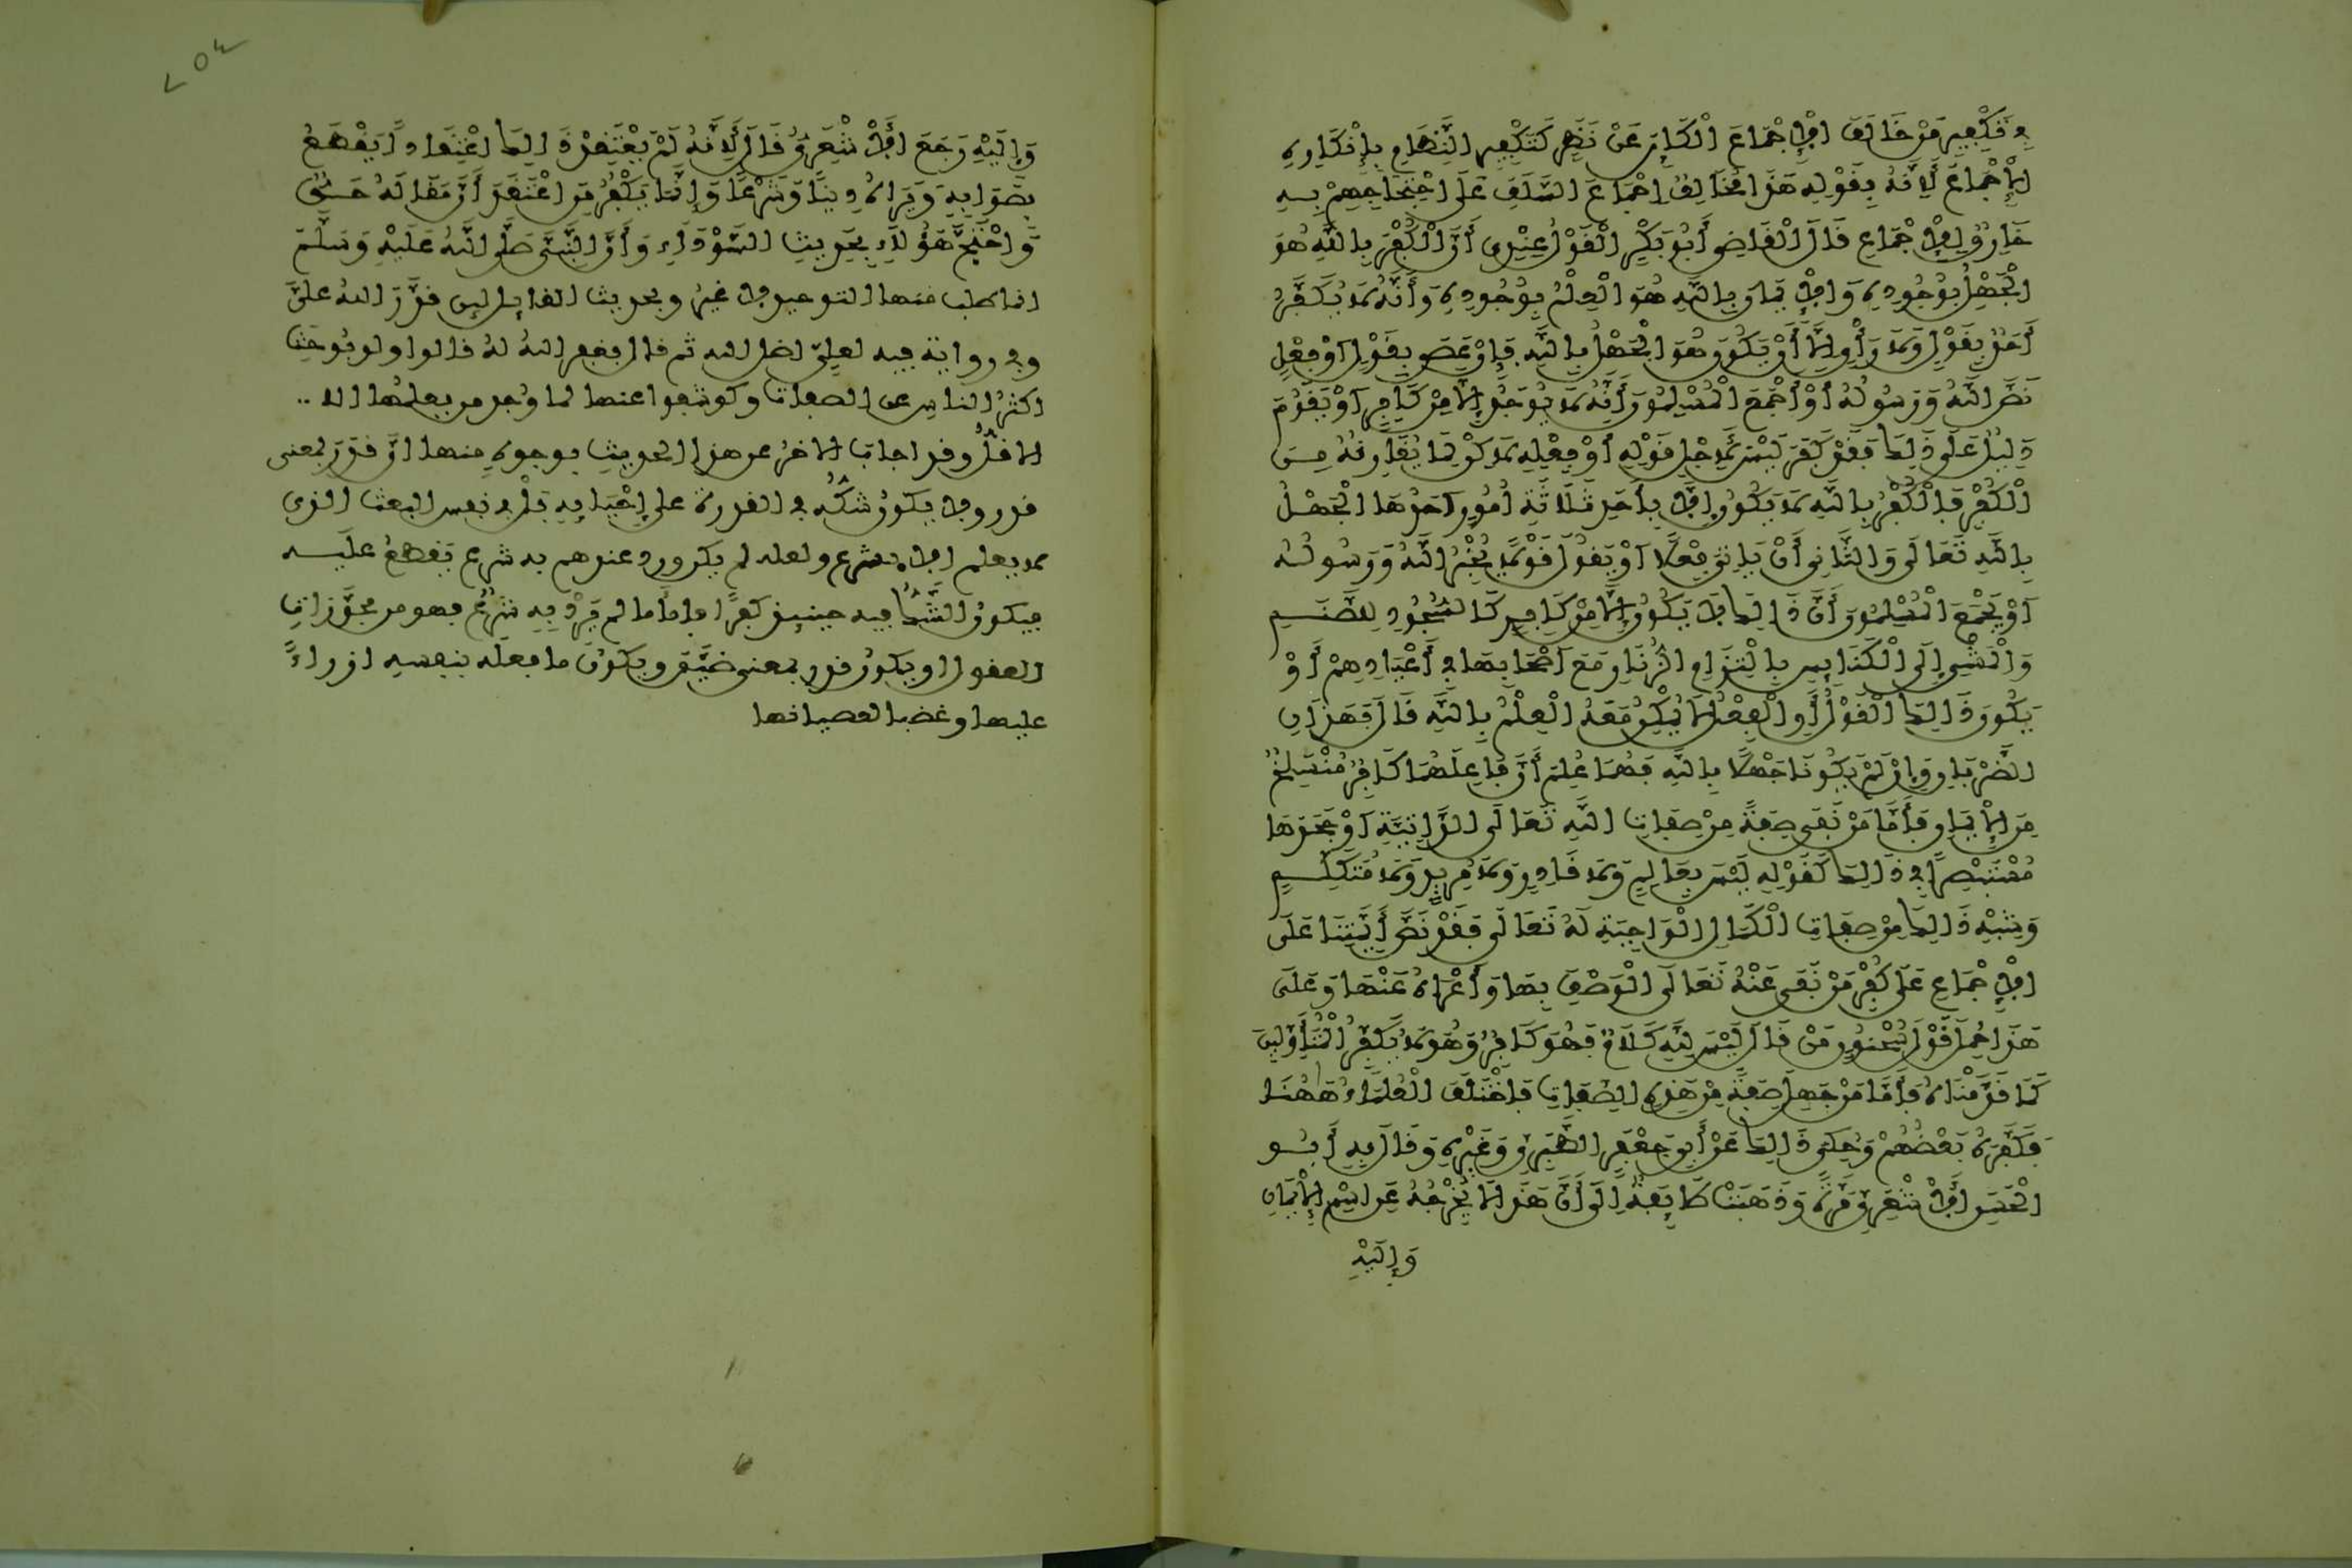 في تَكْفِيرِ مَنْ خَالَفَ الْإِجْمَاعَ الْكَايِنَ عَنْ نَظَرٍ كَتَكْفِيرِ النَّظَّامِ بِإِنْكَارِهِ
الْإِجْمَاعَ لِأَنَّهُ بِقَوْلِهِ هَذَا مُخَالِفٌ إِجْمَاعَ السَّلَفِ عَلَى احْتِجَاجِهِمْ بِهِ
خَارِقٌ لِلْإِجْمَاعِ قَالَ الْقَاضِي أَبُو بَكْرٍ الْقَوْلُ عِنْدِي أَنَّ الْكُفْرَ بِاللَّهِ هُوَ
الْجَهْلُ بِوُجُودِهِ وَالْإِيمَانَ بِاللَّهِ هُوَ الْعِلْمُ بِوُجُودِهِ وَأَنَّهُ لَا يُكَفَّرُ
أَحَدٌ بِقَوْلٍ وَلَا رَأْيٍ إِلَّا أَنْ يَكُونَ هُوَ الْجَهْلُ بِاللَّهِ فَإِنْ عَصَى بِقَوْلٍ أَوْ فِعْلٍ
نَصَّ اللَّهُ وَرَسُولُهُ أَوْ أَجْمَعَ الْمُسْلِمُونَ أَنَّهُ لَا يُوجَدُ إِلَّا مِنْ كَافِرٍ أَوْ يَقُومُ
دَلِيلٌ عَلَى ذَلِكَ فَقَدْ كَفَرَ لَيْسَ لِأَجْلِ قَوْلِهِ أَوْ فِعْلِهِ لَكِنْ لِمَا يُقَارِنُهُ مِنَ
الْكُفْرِ فَالْكُفْرُ بِاللَّهِ لَا يَكُونُ إِلَّا بِأَحَدِ ثَلَاثَةِ أُمُورٍ أَحَدُهَا الْجَهْلُ
بِاللَّهِ تَعَالَى وَالثَّانِي أَنْ يَأْتِيَ فِعْلًا أَوْ يَقُولَ قَوْلًا يُخْبِرُ اللَّهُ وَرَسُولُهُ
أَوْ يُجْمِعُ الْمُسْلِمُونَ أَنَّ ذَالِكَ لَا يَكُونُ إِلَّا مِنْ كَافِرٍ كَالسُّجُودِ لِلصَّنَمِ
وَالْمَشْيِ إِلَى الْكَنَايِسِ بِالْتِزَامِ الزُّنَّارِ مَعَ أَصْحَابِهَا فِي أَعْيَادِهِمْ أَوْ
يَكُونَ ذَالِكَ الْقَوْلُ أَوِ الْفِعْلُ لَا يُمْكِنُ مَعَهُ الْعِلْمُ بِاللَّهِ قَالَ فَهَذَانِ
الضَّرْبَانِ وَإِنْ لَمْ يَكُونَا جَهْلًا بِاللَّهِ فَهُمَا عَلَمٌ أَنَّ فَاعِلَهُمَا كَافِرٌ مُنْسَلِخٌ
مِنَ الْإِيمَانِ فَأَمَّا مَنْ نَفَى صِفَةً مِنْ صِفَاتِ اللَّهِ تَعَالَى الذَّاتِيَّةِ أَوْ جَحَدَهَا
مُسْتَبْصِرًا فِي ذَالِكَ كَقَوْلِهِ لَيْسَ بِعَالِمٍ وَلَا قَادِرٍ وَلَا مُرِيدٍ وَلَا مُتَكَلِّمٍ
وَشِبْهِ ذَالِكَ مِنْ صِفَاتِ الْكَمَالِ الْوَاجِبَةِ لَهُ تَعَالَى فَقَدْ نَصَّ أَيِمَّتُنَا عَلَى
الْإِجْمَاعِ عَلَى كُفْرِ مَنْ نَفَى عَنْهُ تَعَالَى الْوَصْفَ بِهَا وَأَعْرَاهُ عَنْهَا وَعَلَى
هَذَا حُمِلَ قَوْلُ سُحْنُونٍ مَنْ قَالَ لَيْسَ لِلَّهِ كَلَامٌ فَهُوَ كَافِرٌ وَهُوَ لَا يُكَفِّرُ الْمُتَأَوِّلِينَ
كَمَا قَدَّمْنَاهُ فَأَمَّا مَنْ جَهِلَ صِفَةً مِنْ هَذِهِ الصِّفَاتِ فَاخْتَلَفَ الْعُلَمَاءُ هَاهُنَا
فَكَفَّرَهُ بَعْضُهُمْ وَحُكِيَ ذَالِكَ عَنْ أَبِي جَعْفَرٍ الطَّبَرِيِّ وَغَيْرِهِ وَقَالَ بِهِ أَبُو
الْحَسَنِ الْأَشْعَرِيُّ مَرَّةً وَذَهَبَتْ طَايِفَةٌ إِلَى أَنَّ هَذَا لَا يُخْرِجُهُ عَنِ اسْمِ الْإِيمَانِ
وَإِلَيْهِ
وَإِلَيْهِ رَجَعَ الْأَشْعَرِيُّ قَالَ لِأَنَّهُ لَمْ يَعْتَقِدْ ذَالِكَ اعْتِقَادًا يَقْطَعُ
بِصَوَابِهِ وَيَرَاهُ دِينًا وَشَرْعًا وَإِنَّمَا يَكْفُرُ مَنِ اعْتَقَدَ أَنَّ مَقَالَهُ حَقٌّ
وَاحْتَجَّ هَؤُلَاءِ بِحَدِيثِ السَّوْدَاءِ وَأَنَّ النَّبِيَّ صَلَّى اللَّهُ عَلَيْهِ وَسَلَّمَ
انما طلب منها التوحيد لا غيرُ وبحديث القايل لين قدَّر اللهُ علىَّ
وفي رواية فيه لعلّي اضل الله ثم قال فغفر اللهُ لهُ قالوا ولو بُوحِثَ
اكثرُ الناسِ عن الصفات وكوشفوا عنها لما وُجد من يعلمُها الا ..
الاقلُّ وقد اجاب الاخرُ عن هذا الحديثِ بوجوهٍ منها انّ قدَرَ بمعنى
قدر ولا يكونُ شكُّه في القدرة على إحْيَايِهِ بَلْ في نفس البعث الذي
لا يعلم الا بشرع ولعله لم يكن ورد عندهم به شرع يَقطَعُ عليه
فيكونُ الشَّكُّ فيه حينيذ كفرًا فامّا ما لم يَرِدْ بِهِ شرْعٌ فهو من مجوَّزاتِ
العقول او يكونُ قدر بمعنى ضَيَّقَ ويكونُ ما فعلَه بنفسه ازراءً
عليها وغضبا لعصيانها